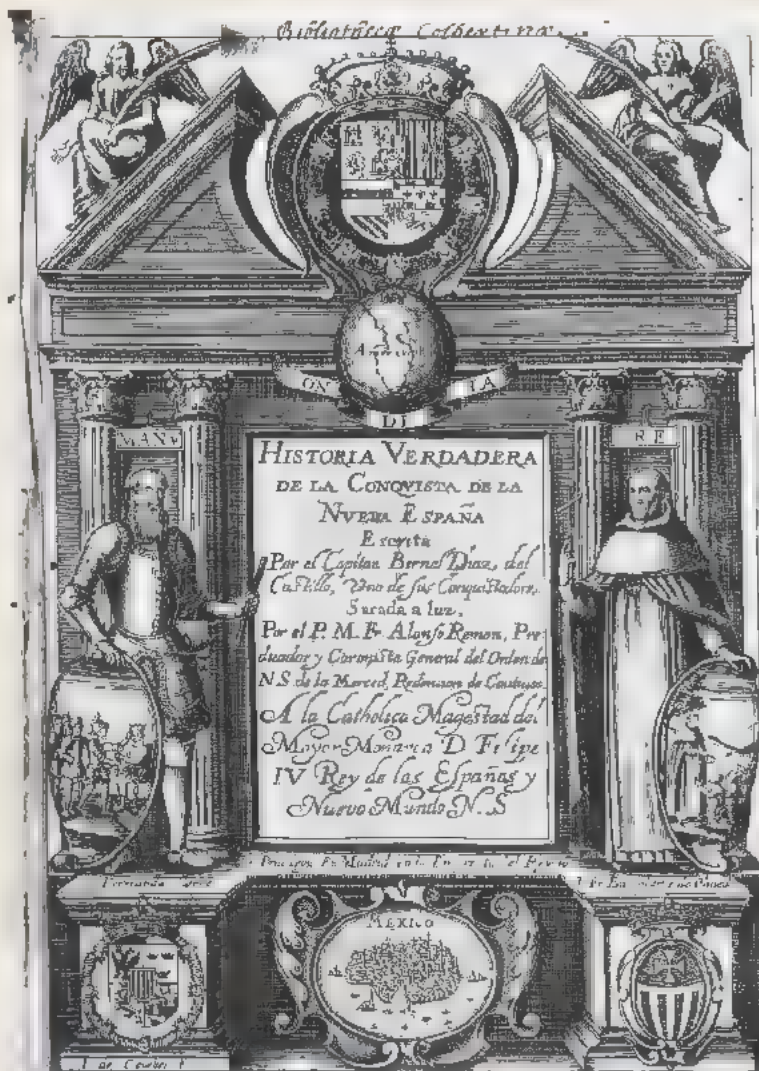 Bibliothecæ Colbertinæ
America
ON
DI
TA
MANV
RE
HISTORIA VERDADERA
DE LA CONQVISTA DE LA
NVEBA ESPAÑA
Escrita
Por el Capitan Bernal Diaz, del
Castillo, Vno de sus Conquistadores.
Sacada a luz,
Por el P. M. Fr. Alonso Remon, Pre-
dicador y Coronista General del Orden de
N.S. de la Merced, Redencion de Cautivos.
A la Catholica Magestad del
Mayor Monarca D. Felipe
IV Rey de las Españas y
Nuevo Mundo N.S
En Madrid en la
Fernando
MEXICO